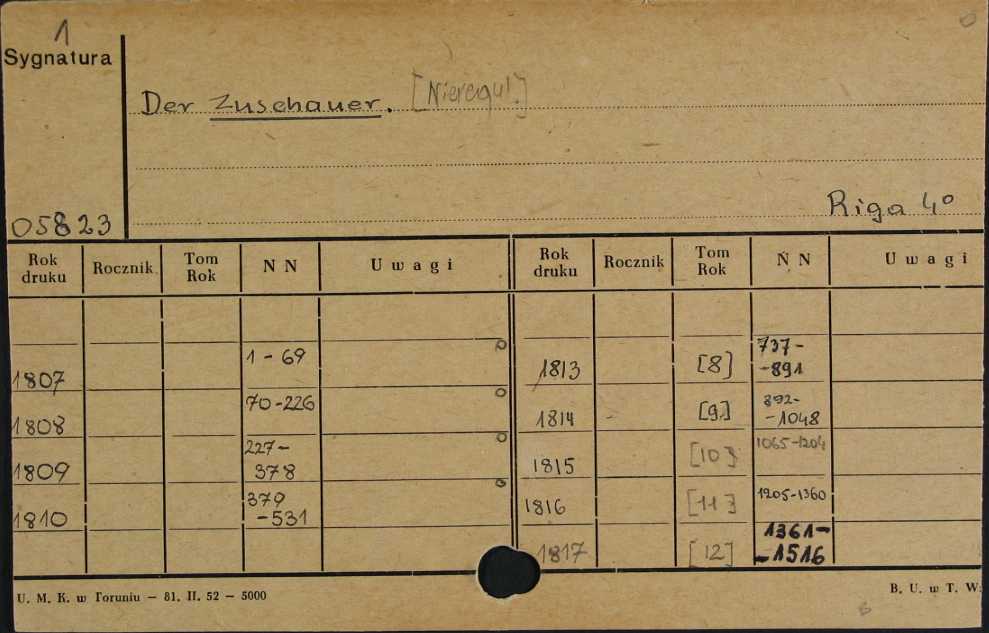 1
Sygnatura
Der Zuschauer. [Nieregul.]
Riga 4°
05823
Rok druku Rocznik Tom Rok N N Uwagi Rok druku Rocznik Tom Rok N N Uwagi
1807 1 - 69
1808 70-226
1809 227-378
1810 379-531
1813 [8] 737--891
1814 - [9] 892--1048
1815 [10] 1065-1204
1816 [11] 1205-1360
1817 [12] 1361--1516
U. M. K. w Toruniu — 81. II. 52 — 5000
B. U. w T. W.